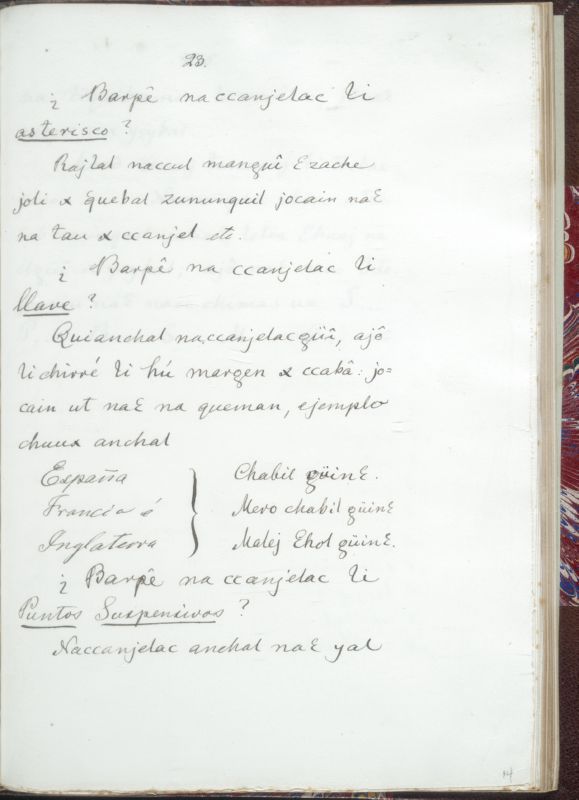 23.
¿ Barpê na ccanjelac li
asterisco?
Rajlal naccul manguî Ɛzache
joli x quebal zununquil jocain naƐ
na tau x ccanjel etc.
¿ Barpê na ccanjelac li
llave?
Quianchal naccanjelacgüî, ajô
li chirré li hú margen x ccabâ: jo=
cain ut naƐ na queman, ejemplo
chuux anchal
España } Chabil güinƐ.
Francia é } Mero chabil güinƐ
Inglaterra } Malej Ɛhol güinƐ.
¿ Barpê na ccanjelac li
Puntos Suspensivos?
Naccanjelac anchal naƐ yal
14